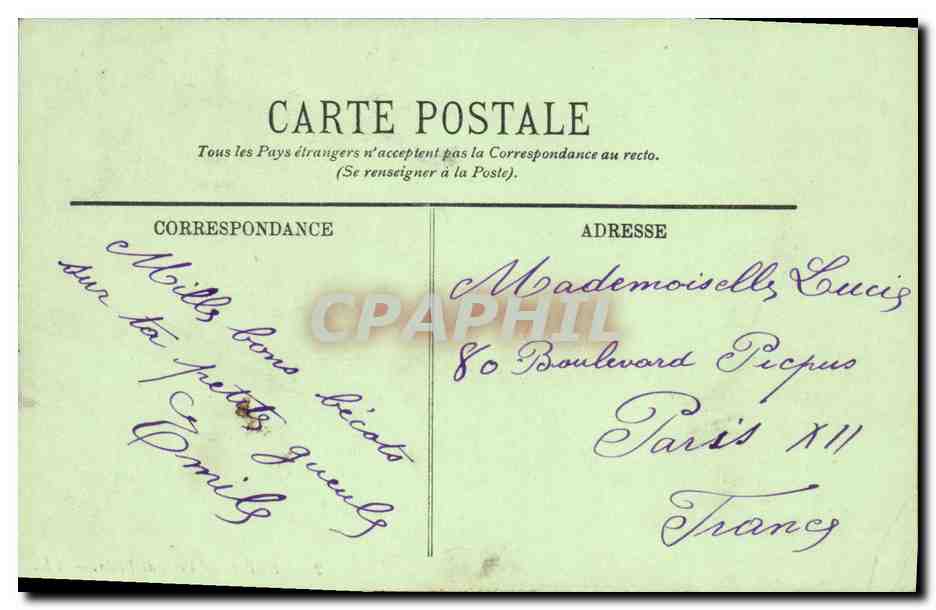 CARTE POSTALE
Tous les Pays étrangers n'acceptent pas la Correspondance au recto.
(Se renseigner à la Poste).
CORRESPONDANCE
Mille bons bécots
sur ta petite gueule
Emile
ADRESSE
Mademoiselle Lucie
80 Boulevard Picpus
Paris XII
France
CPAPHIL